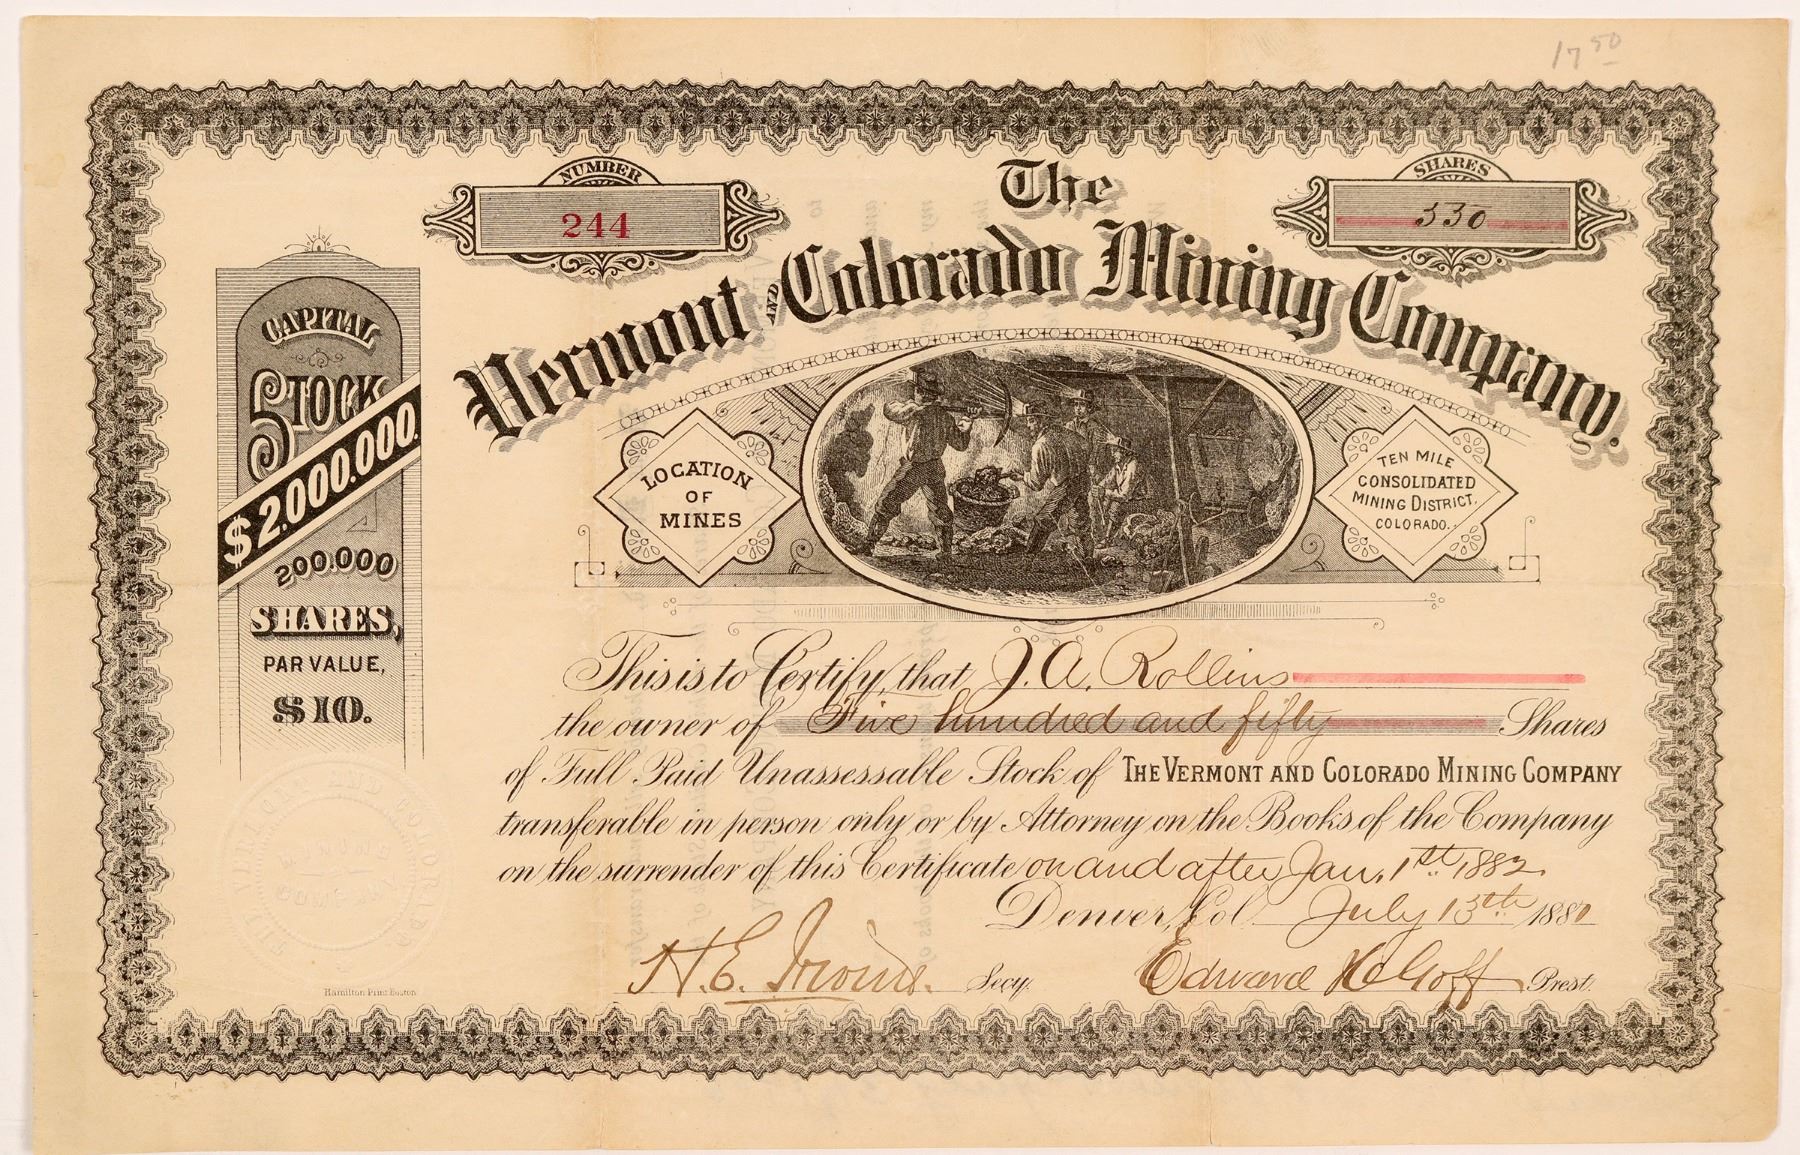 17 50
NUMBER
244
SHARES
550
The
Vermont AND Colorado Mining Company.
CAPITAL
STOCK
$2,000.000.
200.000
SHARES,
PAR VALUE,
$10.
LOCATION
OF
MINES
TEN MILE
CONSOLIDATED
MINING DISTRICT,
COLORADO.
This is to Certify, that J. A. Rollins
the owner of Five hundred and fifty Shares
of Full Paid Unassessable Stock of THE VERMONT AND COLORADO MINING COMPANY
transferable in person only or by Attorney on the Books of the Company
on the surrender of this Certificate on and after Jan. 1st 1882
Denver, Col. July 15th 1881
H. E. Secy.
Edward Prest.
THE VERMONT AND COLORADO
MINING
COMPANY
Hamilton Print Boston